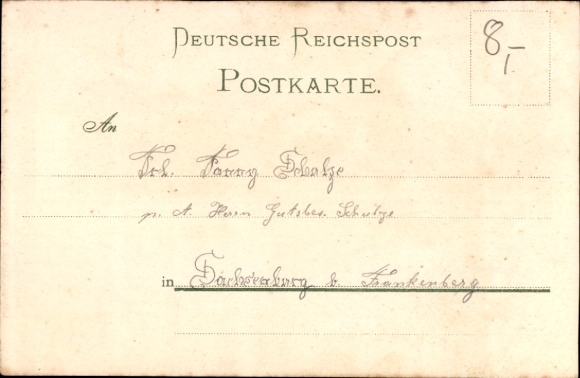 DEUTSCHE REICHSPOST
POSTKARTE.
8,-
An
Frl. Fanny Schulze
p. A. Herrn Gutsbes. Schulze
in Sachsenburg b. Frankenberg